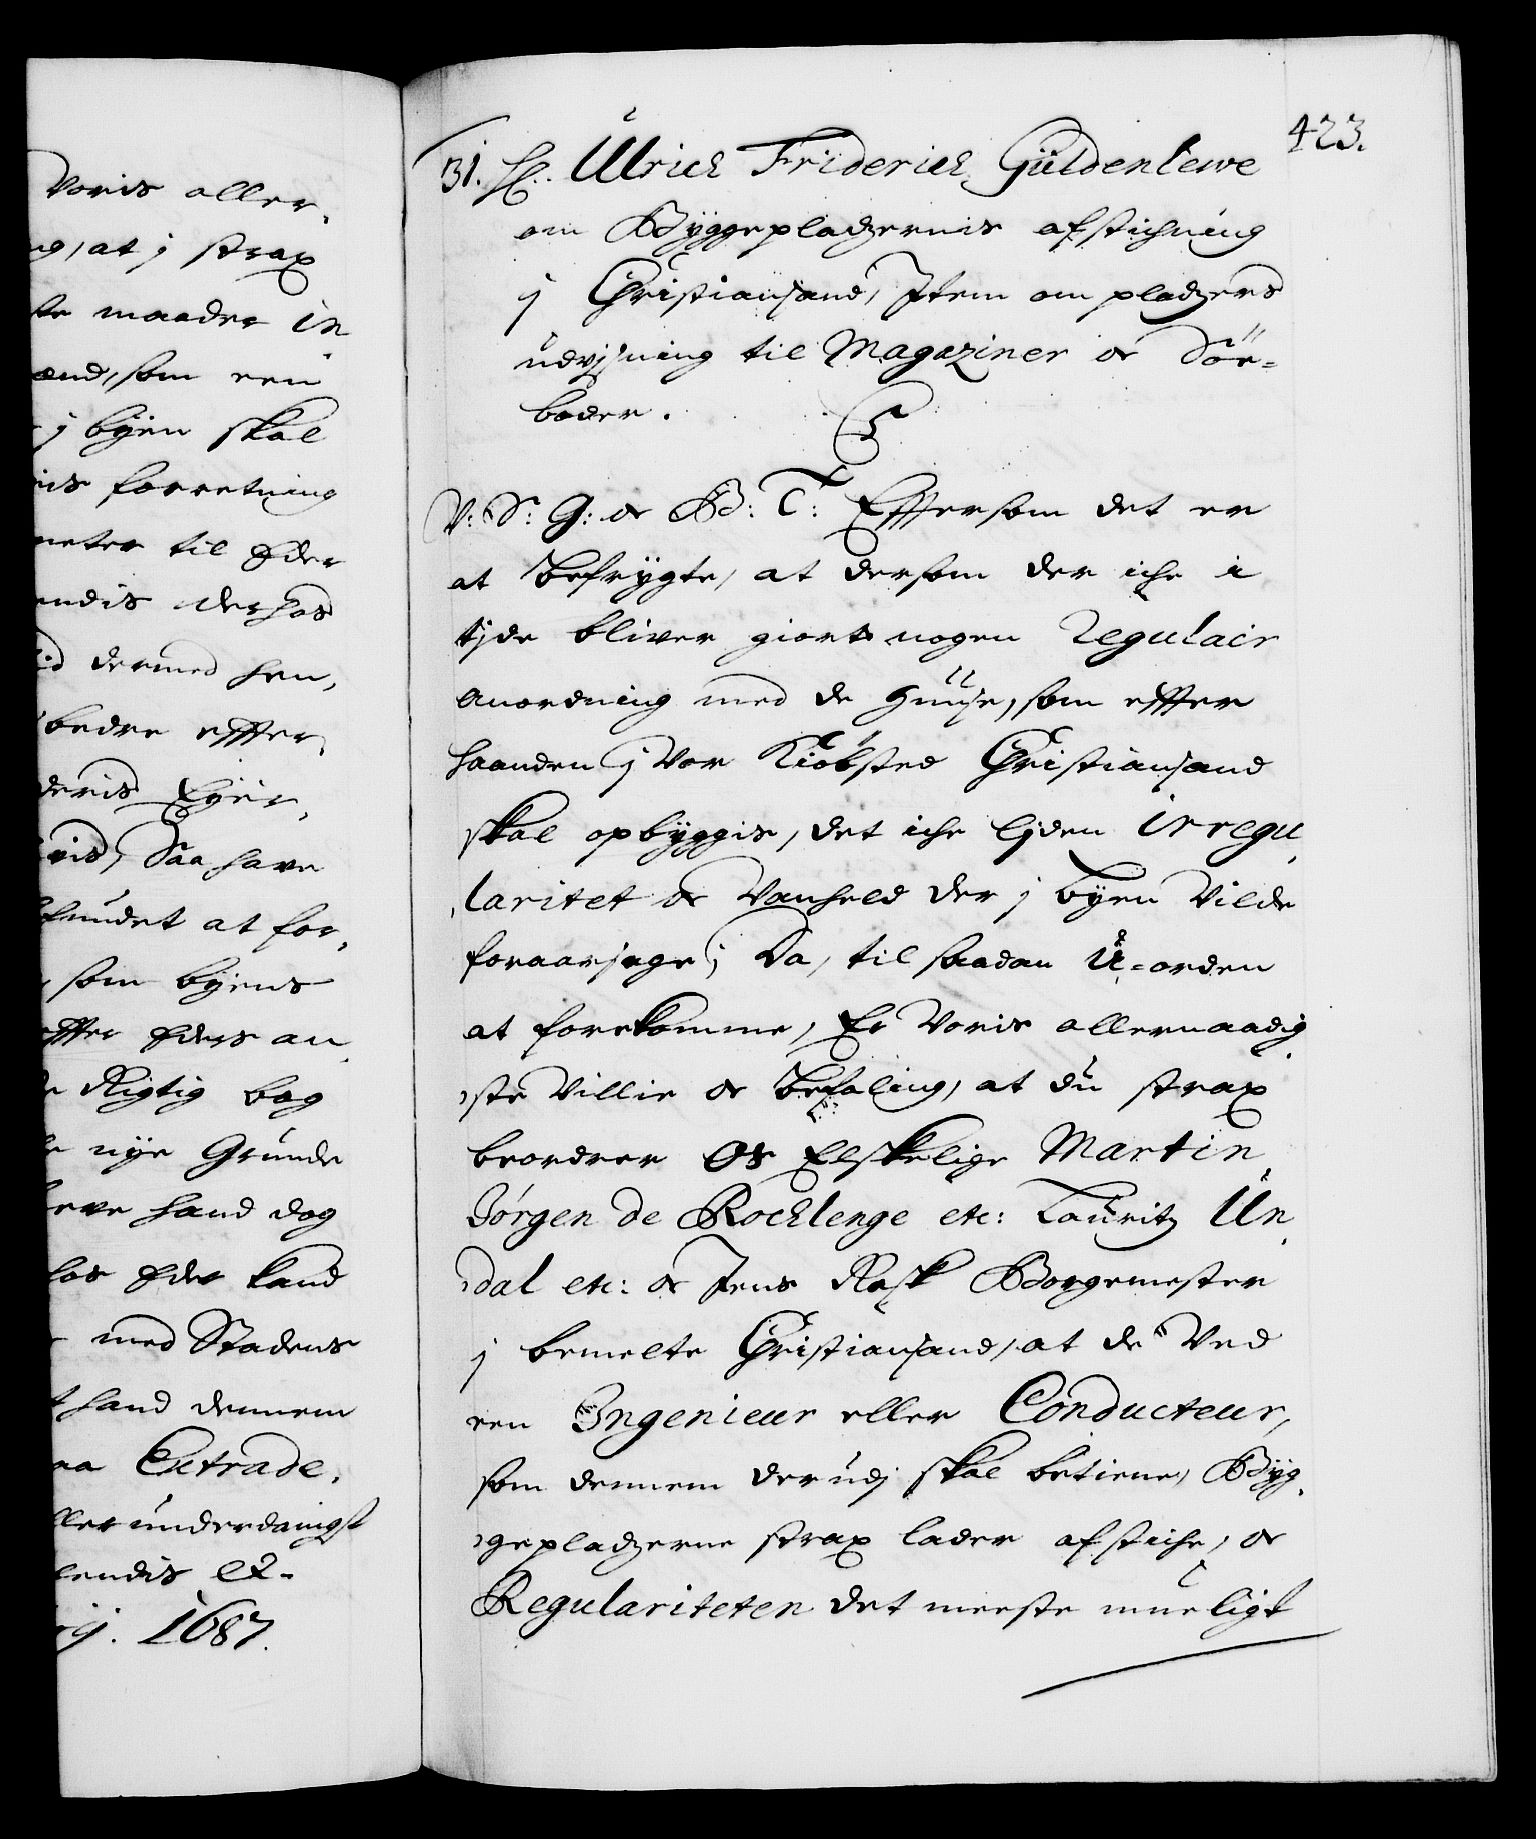 Voris aller,
ng, at j strax
ste maader in
mend, som een
j byen skal
nis forretning
meter til Eder
endis derhos
dermed hen,
bedre effter,
deris Eyer,
vis, Saa have
funded at for,
, som byens
effter Eders an
Rigtig bog
nye Grunde
hand dog
hos Eder kand
med Stadens
hand dennem
Extrade.
ller underdanigst
lendis etc.
1687.
423.
31. H. Ulrich Friderich Güldenlewe
om Byggepladzernis afstichning
j Christiansand, Item om pladzers
udvjsning til Magaziner oc Söe-
boder.
C5
V: S: G: oc B: T: Effersom det er
at befrygte, at dersom der iche i
tjde bliver giort nogen Regulair
anordning med de huuse, som effter
haanden j Vor Kiøbsted Christiansand
skal opbyggis, det iche ljden irregu,
,laritet oc Vanheld der j byen Vilde
foraarsage; Da, til saadan U-orden
at forekomme, Er Voris allernaadig
,ste Villie oc befaling, at du strax
beordrer Os Elskelige Martin
Jørgen de Rochlenge etc: Lauritz Un,
,dal etc: oc Jens Rask Borgemester
j bemelte Christiansand, at de Ved
een Ingenieur eller Conducteur,
som dennem derudj skal betiene, Byg,
,gepladzerne strax lader afstiche, oc
Regulariteten det meeste mueligt